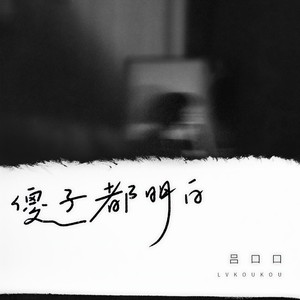 傻子都明白
吕口口
LVKOUKOU